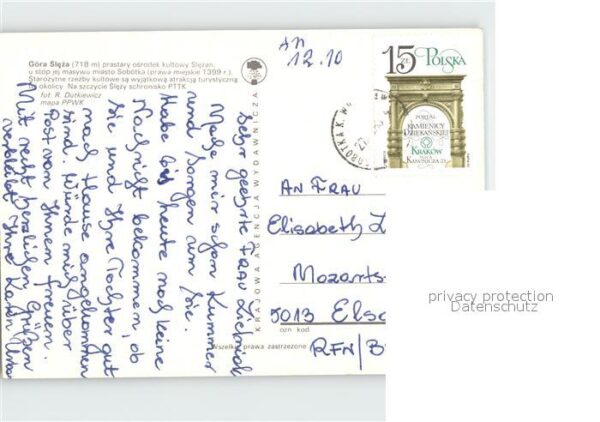 Góra Ślęża (718 m) prastary ośrodek kultowy Ślęzan,
u stóp jej masywu miasto Sobótka (prawa miejskie 1399 r.).
Starożytne rzeźby kultowe są wyjątkową atrakcją turystyczną
tej okolicy. Na szczycie Ślęży schronisko PTTK
fot. R. Dutkiewicz
mapa PPWK
An
12.10
Sehr geehrte Frau
Mache mir schon Kummer
und Sorgen um Sie.
Habe bis heute noch keine
Nachricht bekommen, ob
Sie und Ihre Tochter gut
nach Hause angekommen
sind. Würde mich über
Post von Ihnen freuen.
Mit recht herzlichen Grüßen
verbleibt Ihre
KRAJOWA AGENCJA WYDAWNICZA
15 ZŁ POLSKA
PORTAL
KAMIENICY
DZIEKAŃSKIEJ
KRAKÓW
KANONICZA 21
SOBÓTKA K. W
AN FRAU
Elisabeth L
Mozarts-
5013 Els
ozn kod
RFN/B
Wszelkie prawa zastrzeżone
privacy protection
Datenschutz